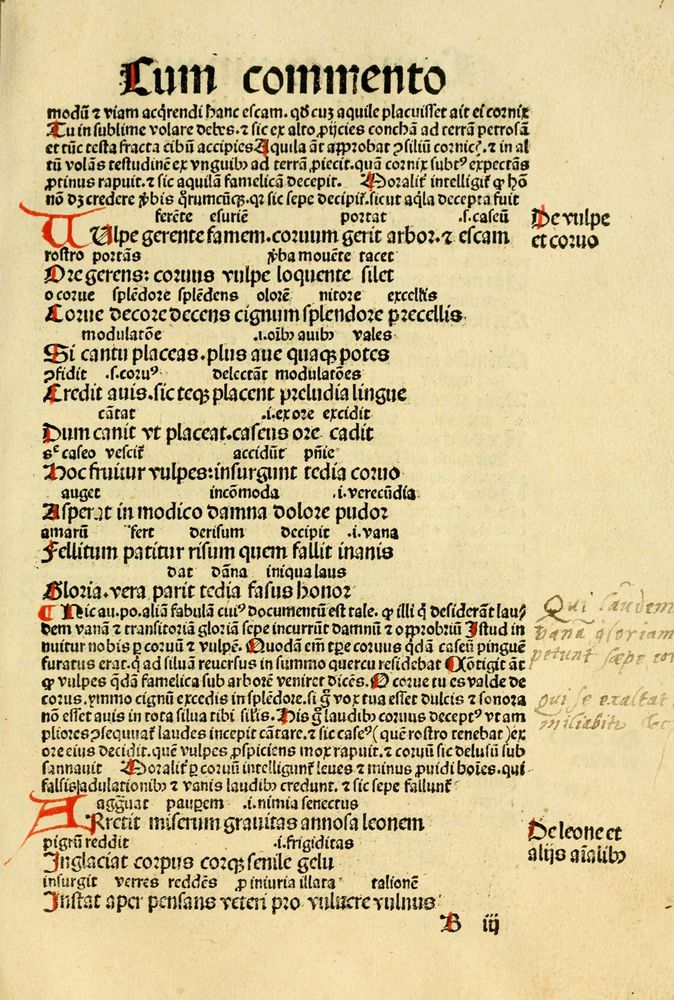 Cum commento
modū ⁊ viam acq̄rendi hanc escam. qd̄ cuꝫ aquile placuisset ait ei cornix
Tu in sublime volare debes. ⁊ sic ex alto ꝓijcies conchā ad terrā petrosā
et tūc testa fracta cibū accipies Aquila āt approbat ꝯsiliū cornic?. ⁊ in al
tū volās testudinē ex vnguibꝰ ad terrā ꝓiecit. quā cornix subtꝰ expectās
ꝓtinus rapuit. ⁊ sic aquilā famelicā decepit. Moralit̄ intelligit̄ ꝙ hō
nō dꝫ credere v̄bis q̄rumcūqꝫ. qꝛ sic sepe decipit̄. sicut aq̄la decepta fuit
ferēte esuriē portat .s. caseū
VUlpe gerente famem. coruum gerit arbor. ⁊ escam
De vulpe
et coruo
rostro portās v̄ba mouēte tacet
Ore gerens: coruus vulpe loquente silet
o corue splēdore splēdens olorē nitore excellis
Corue decore decens cignum splendore precellis
modulatōe .i. oīb auib vales
Si cantu placeas. plus aue quaqꝫ potes
ꝯfidit .s. coruꝰ delectāt modulatōes
Credit auis. sic teqꝫ placent preludia lingue
cātat .i. ex ore excidit
Dum canit vt placeat. caseus ore cadit
sꝫ caseo vescit̄ accidūt pn̄ie
Hoc fruitur vulpes: insurgunt tedia coruo
auget incōmoda .i. verecūdia
Asperat in modico damna dolore pudor
amarū fert derisum decipit .i. vana
Fellitum patitur risum quem fallit inanis
dat dāna iniqua laus
Gloria. vera parit tedia fasus honor
¶ Hic au. po. aliā fabulā cuiꝰ documentū est tale. ꝙ illi q̄ desiderāt lau/
dem vanā ⁊ transitoriā gloriā sepe incurrūt damnū ⁊ opprobriū Istud in
nuitur nobis ꝑ coruū ⁊ vulpē. Quodā em̄ tꝑe coruus qdā caseū pinguē
furatus erat. q̄ ad siluā reuersus in summo quercu residebat Cōtigit āt
ꝙ vulpes qdā famelica sub arbore veniret dicēs. O corue tu es valde de
corus. ymmo cignū excedis in splēdore. si ḡ vox tua esset dulcis ⁊ sonora
nō esset auis in tota silua tibi silis. His ḡ laudibꝰ coruus deceptꝰ vt am
pliores ꝯsequeret̄ laudes incepit cātare. ⁊ sic caseꝰ (quē rostro tenebat) ex
ore eius decidit. quē vulpes ꝓspiciens mox rapuit. ⁊ coruū sic delusū sub
sannauit Moralit̄ ꝑ coruū intelligunt̄ leues ⁊ minus ꝓuidi hoīes. qui
falsis adulationibꝰ ⁊ vanis laudibꝰ credunt. ⁊ sic sepe fallunt̄
Qui laudem
vanā gloriam
petunt sæpe
qui se exaltat
miliabitꝰ &c
aggᷓuat pauꝑem .i. nimia senectus
ARrctit miserum grauitas annosa leonem
pigrū reddit .i. frigiditas
Inglaciat corpus corqꝫ senile gelu
De leone et
alijs aīalibꝰ
insurgit verres reddēs ꝓ iniuria illata talionē
Instat aper pensans veteri pro vulnere vulnus
B iij